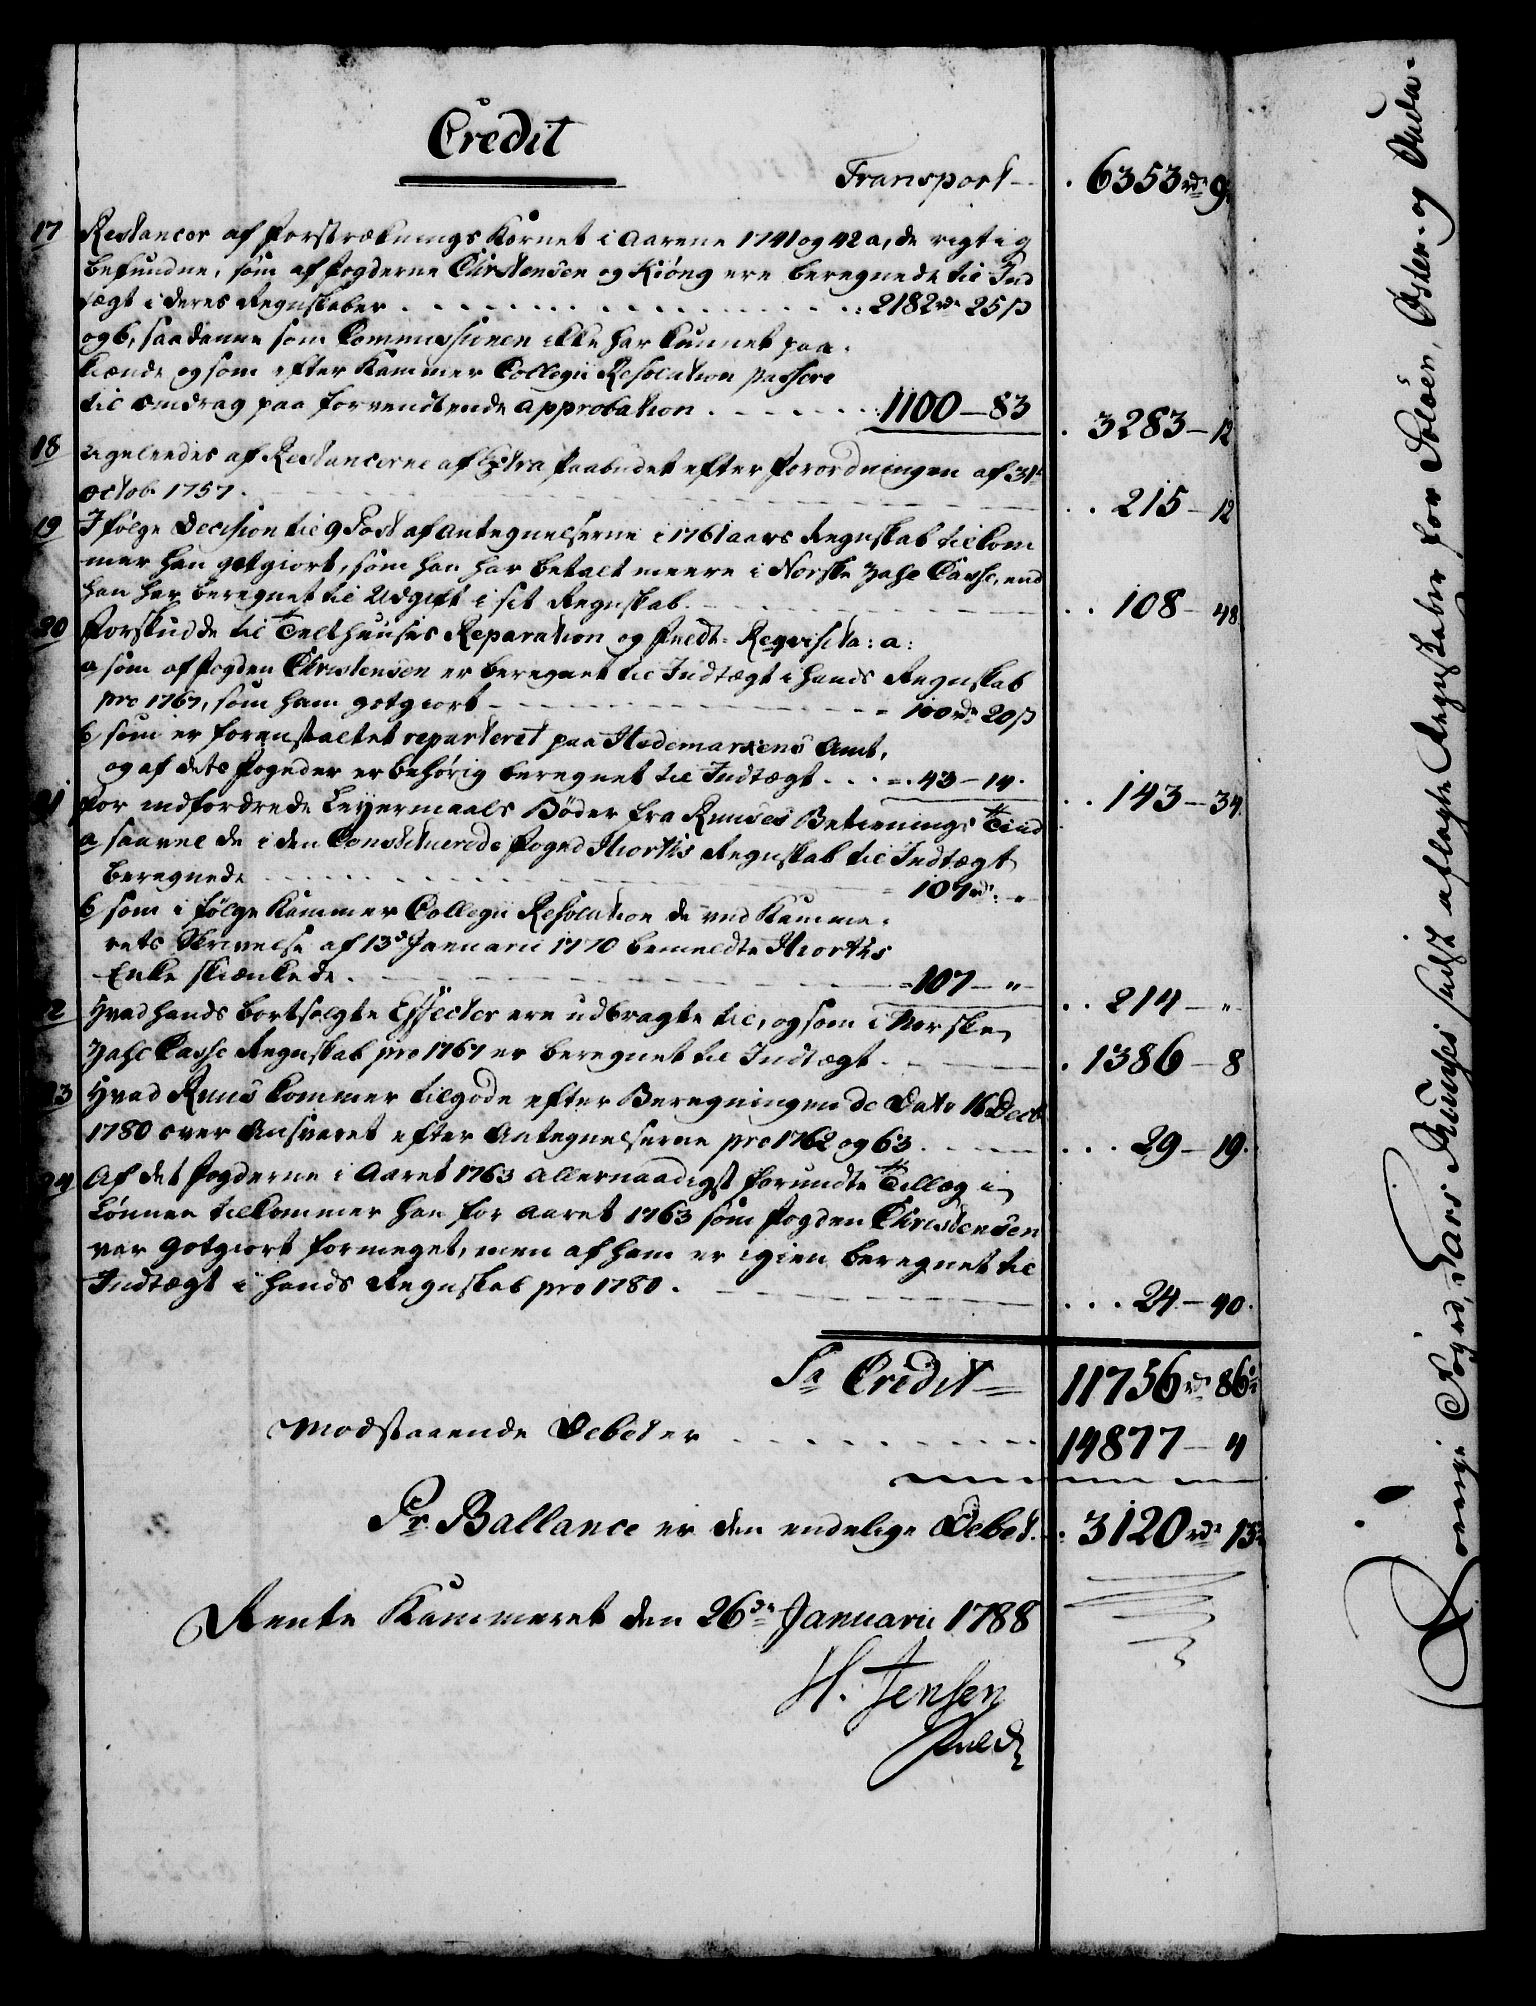 Credit
Transport - . 6353 rd 9
17 Restancer af Forstræknings Kornet i Aarene 1741 og 42 a, de rigtig
befundne, som af Fogderne Christensen og Kiöng ere beregnede til Ind
tægt i deres Regnskaber . . . 2182 rd 25 ß
og b, saadanne som Commissionen ikke har kunnet paa-
kiænde og som efter Kammer Collegii Resolution passere
til Omdrag paa forventende Approbation . . . 1100 - 83 . 3283 - 12
18 Ligeleedes af Restancerne af Extra Paabudet efter Forordningen af 31te
Octob. 1757 . . . 215 - 12
19 I følge Decision til 9 Post af Antegnelserne i 1761 aars Regnskab tilkom
mer han gotgiort, som han har betalt meere i Norske Zahl Casse, end
han har beregnet til Udgift i sit Regnskab. . . 108 - 48
20 Forskudde til Telthuuses Reparation og Feldt-Reqvisita: a:
a som af Fogden Christensen er beregnet til Indtægt i hands Regnskab
pro 1767, som ham gotgiort - - 100 rd 20 ß
b som er foranstaltet reparteret paa Hedemarkens Amt,
og af dets Fogeder er behörig beregnet til Indtægt . . . 43 - 14 . . . 143 - 34.
21 For indfordrede Leyermaals Böder fra Ruuses Betienings Tiid
a saavel de i den Constituerede Foged Hiorths Regnskab til Indtægt
beregnede . . . 107 rd „
b som i følge Kammer Collegii Resolution de ved Kamme-
rets Skrivelse af 13de Januarii 1770 bemeldte Hiorths
Enke skiænkede . . . 107 - „ . . 214 - „
2 Hvad hands bortsolgte Effecter ere udbragte til, og som i Norske
Zahl Casse Regnskab pro 1767 er beregnet til Indtægt . . . 1386 - 8
23 Hvad Ruus kommer tilgode efter Beregningen de Dato 16 Decbr
1780 over Ansvaret efter Antegnelserne pro 1762 og 63 . . . 29 - 19.
24 Af det Fogderne i Aaret 1763 allernaadigst forundte Tillæg i
Lønnen tilkommer han for Aaret 1763 som Fogden Christensen
var gotgiort formeget, men af ham er igien beregnet til
Indtægt i hands Regnskab pro 1780 . . . 24 - 40.
Sa Credit - 11756 rd 86
Modstaaende Debet er . . . 14877 - 4
Pr Ballance er den endelige Debet . 3120 rd 13
Rente Kammeret den 26de Januarii 1788
H. Jensen
Forrige Foged, Lars Ruuses sidst aflagte Regnskaber for Soløer, Øster- og Oudа-